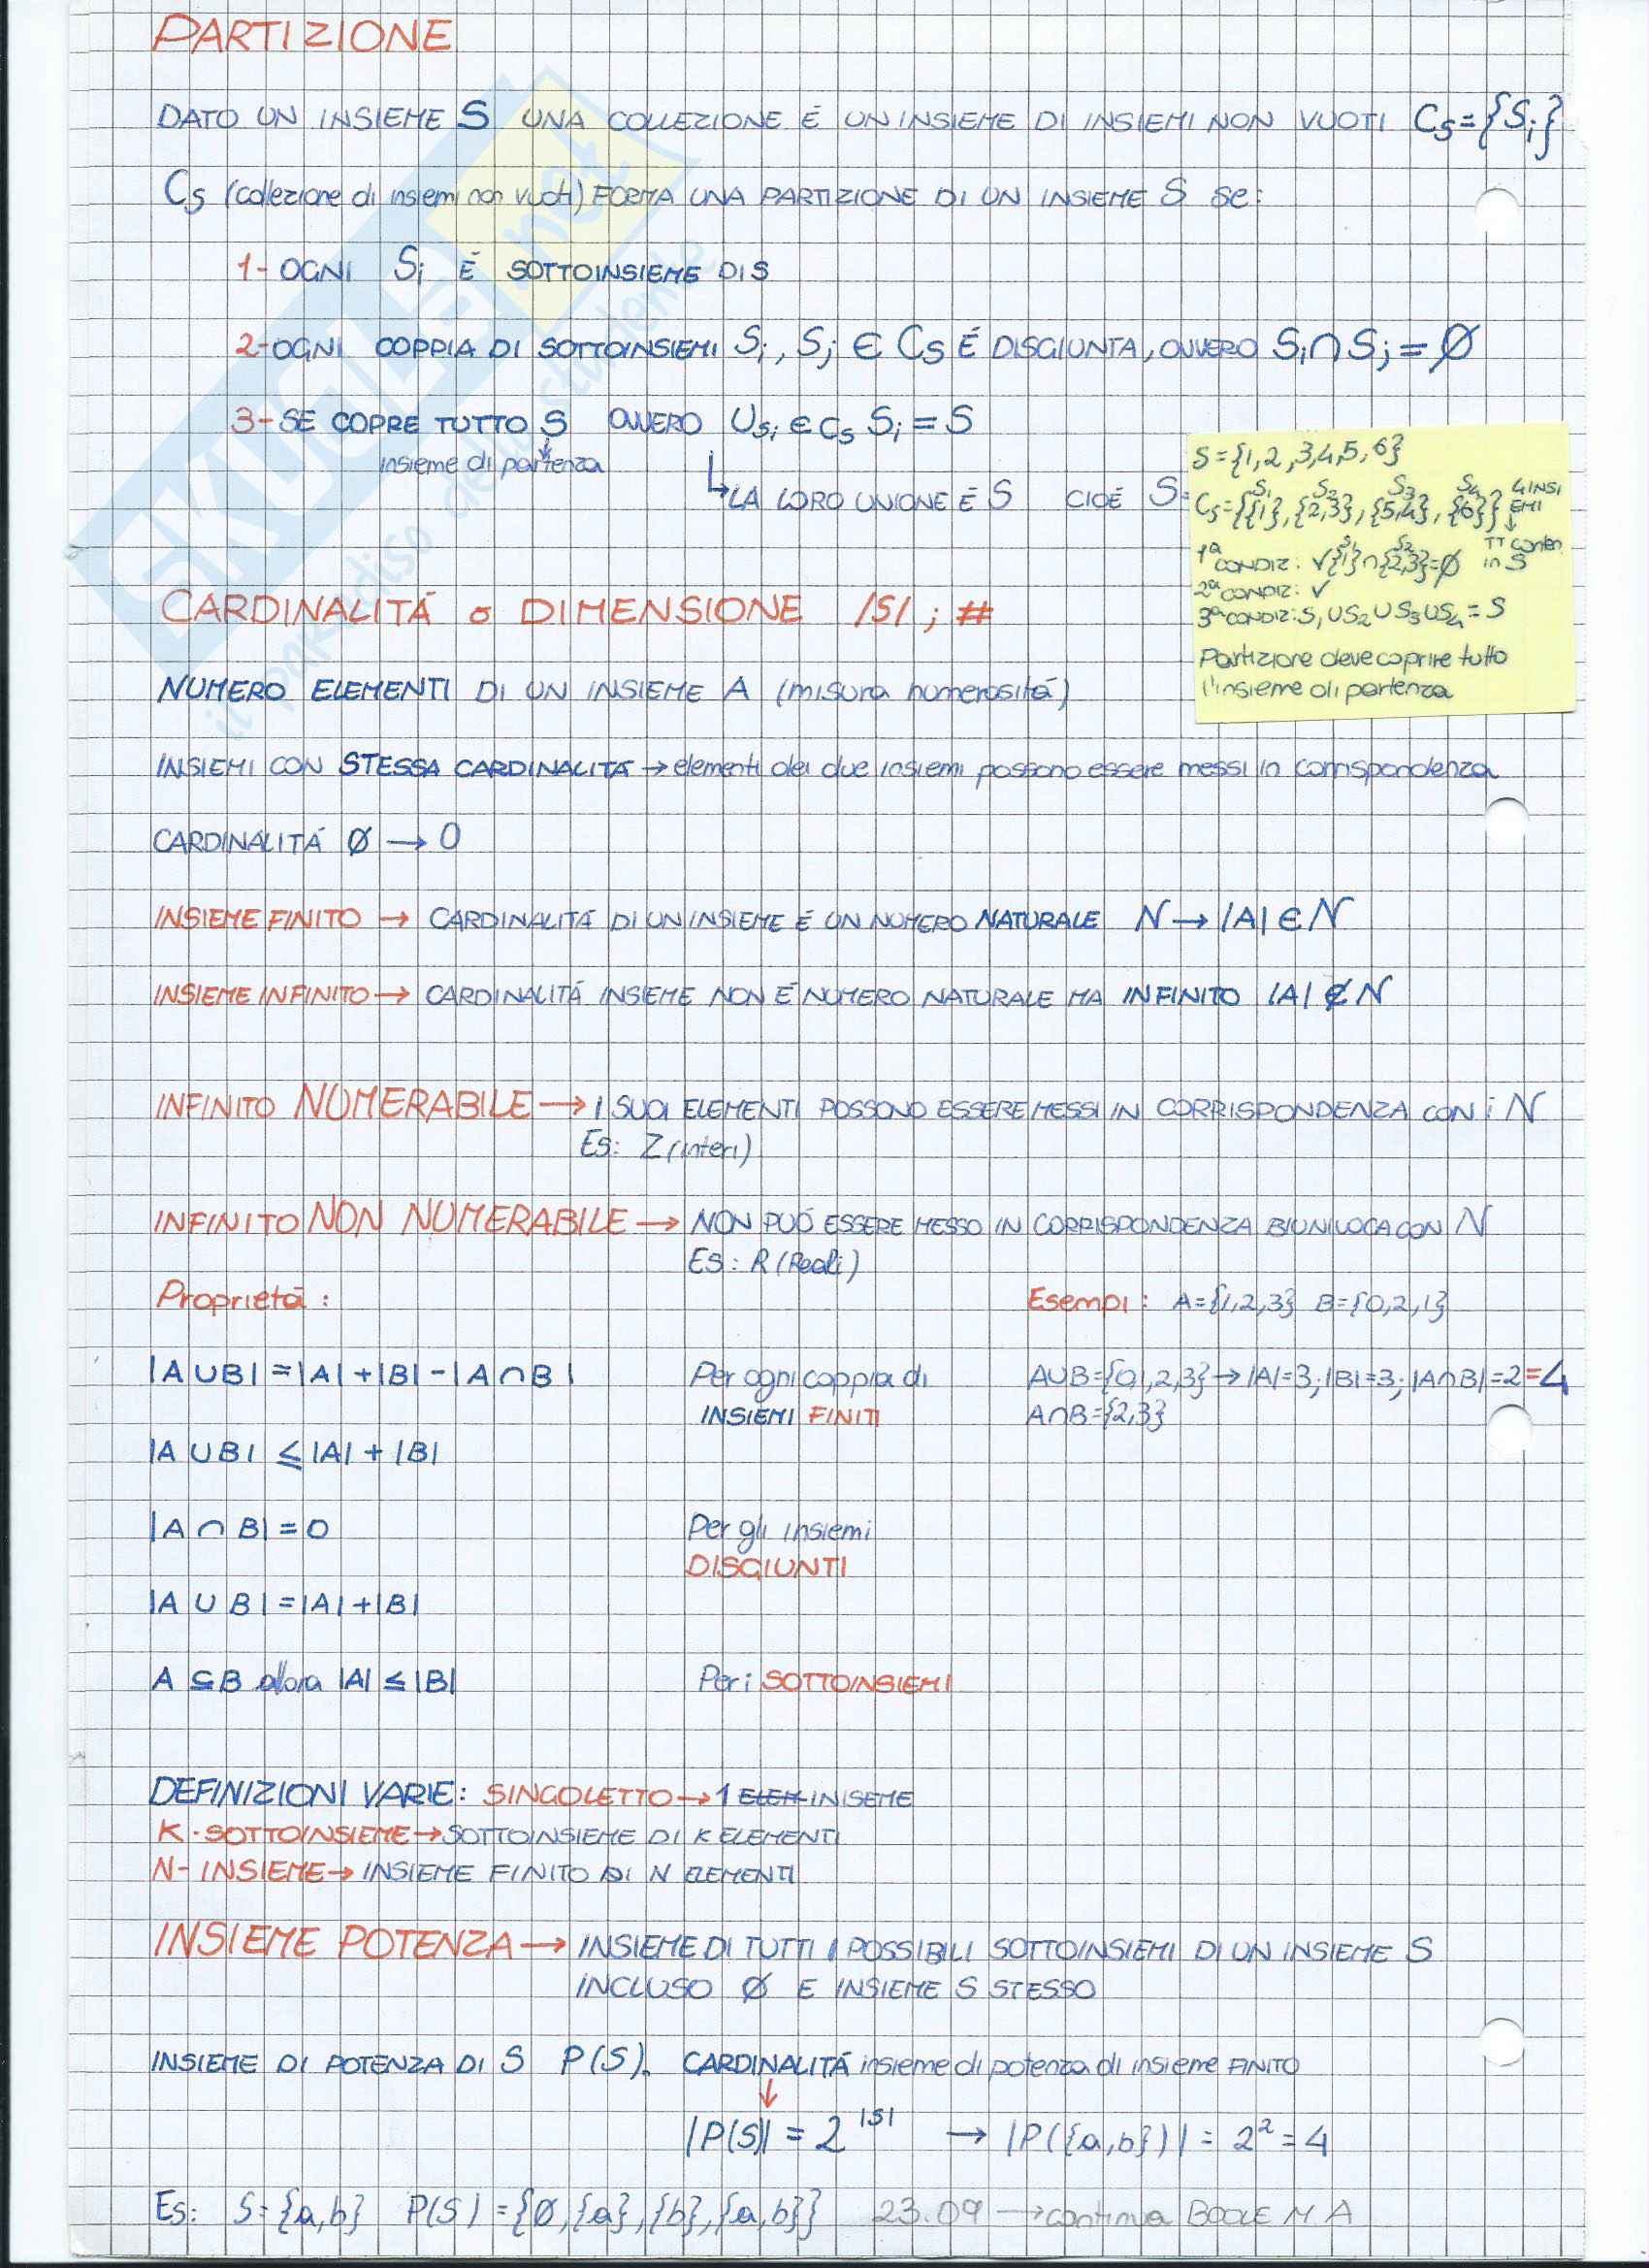 PARTIZIONE
DATO UN INSIEME S UNA COLLEZIONE É UN INSIEME DI INSIEMI NON VUOTI Cs={Si}
Cs (collezione di insiemi non vuoti) FORMA UNA PARTIZIONE DI UN INSIEME S se:
1- OGNI Si É SOTTOINSIEME DI S
2- OGNI COPPIA DI SOTTOINSIEMI Si, Sj ∈ Cs É DISGIUNTA, OVVERO Si∩Sj=∅
3- SE COPRE TUTTO S OVVERO ∪Si∈Cs Si=S
insieme di partenza
↳LA LORO UNIONE É S CIOÉ S=
S={1,2,3,4,5,6}
S1 S2 S3 S4
Cs={{1},{2,3},{5,4},{6}} 4 INSI
EMI
↓
TT conten
in S
S1 S2
1ª CONDIZ: √{1}∩{2,3}=∅
2ª CONDIZ: √
3ª CONDIZ: S1∪S2∪S3∪S4=S
Partizione deve coprire tutto
l'insieme di partenza
CARDINALITÁ o DIMENSIONE |S| ; #
NUMERO ELEMENTI DI UN INSIEME A (misura numerositá)
INSIEMI CON STESSA CARDINALITÁ → elementi dei due insiemi possono essere messi in corrispondenza
CARDINALITÁ ∅ → 0
INSIEME FINITO → CARDINALITÁ DI UN INSIEME É UN NUMERO NATURALE N → |A| ∈ N
INSIEME INFINITO → CARDINALITÁ INSIEME NON É NUMERO NATURALE MA INFINITO |A| ∉ N
INFINITO NUMERABILE → I SUOI ELEMENTI POSSONO ESSERE MESSI IN CORRISPONDENZA CON i N
Es: Z (interi)
INFINITO NON NUMERABILE → NON PUÓ ESSERE MESSO IN CORRISPONDENZA BIUNILOCA CON N
ES: R (Reali)
Proprietá: Esempi: A={1,2,3} B={0,2,1}
|A∪B|=|A|+|B|-|A∩B| Per ogni coppia di A∪B={0,1,2,3}→|A|=3;|B|=3;|A∩B|=2=4
INSIEMI FINITI A∩B={2,3}
|A∪B| ≤ |A|+|B|
|A∩B|=0 Per gli insiemi
DISGIUNTI
|A∪B|=|A|+|B|
A⊆B allora |A|≤|B| Per i SOTTOINSIEMI
DEFINIZIONI VARIE: SINGOLETTO → 1 ELEM INISEME
K-SOTTOINSIEME → SOTTOINSIEME DI K ELEMENTI
N-INSIEME → INSIEME FINITO DI N ELEMENTI
INSIEME POTENZA → INSIEME DI TUTTI I POSSIBILI SOTTOINSIEMI DI UN INSIEME S
INCLUSO ∅ E INSIEME S STESSO
INSIEME DI POTENZA DI S P(S). CARDINALITÁ insieme di potenza di insieme FINITO
↓
|P(S)| = 2^|S| → |P({a,b})| = 2² = 4
Es: S={a,b} P(S)={∅,{a},{b},{a,b}} 23.09 → continua BOOLE M.A
SKUOLA.net
il paradiso dello studente